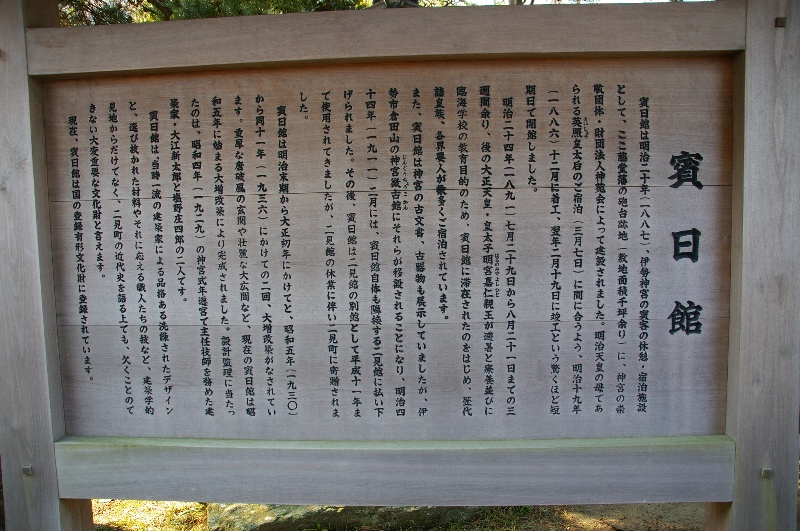 賓日館
賓日館は明治二十年(一八八七)、伊勢神宮の賓客の休憩・宿泊施設
として、ここ藤堂藩の砲台跡地(敷地面積千坪余り)に、神宮の崇
敬団体・財団法人神苑会によって建設されました。明治天皇の母であ
られる英照皇太后のご宿泊(三月七日)に間に合うよう、明治十九年
(一八八六)十二月に着工、翌年二月十九日に竣工という驚くほど短
期日で開館しました。
明治二十四年(一八九一)七月二十九日から八月二十一日までの三
週間余り、後の大正天皇・皇太子明宮嘉仁親王が避暑と療養並びに
臨海学校の教育目的のため、賓日館に滞在されたのをはじめ、歴代
諸皇族、各界要人が数多くご宿泊されています。
また、賓日館は神宮の古文書、古器物も展示していましたが、伊
勢市倉田山の神宮徴古館にそれらが移設されることになり、明治四
十四年(一九一一)二月には、賓日館自体も隣接する二見館に払い下
げられました。その後、賓日館は二見館の別館として平成十一年ま
で使用されてきましたが、二見館の休業に伴い二見町に寄贈されま
した。
賓日館は明治末期から大正初年にかけてと、昭和五年(一九三〇)
から同十一年(一九三六)にかけての二回、大増改築がなされてい
ます。重厚な唐破風の玄関や壮麗な大広間など、現在の賓日館は昭
和五年に始まる大増改築により完成されました。設計監理に当たっ
たのは、昭和四年(一九二九)の神宮式年遷宮で主任技師を務めた建
築家・大江新太郎と塩野庄四郎の二人です。
賓日館は、当時一流の建築家による品格ある洗練されたデザイン
と、選び抜かれた材料やそれに応える職人たちの技など、建築学的
見地からだけでなく、二見町の近代史を語る上でも、欠くことので
きない大変重要な文化財と言えます。
現在、賓日館は国の登録有形文化財に登録されています。